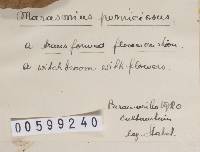 Marasmius perniciosus
a transformed flowercushion.
a witchbroom with flowers.
Paramaribo 1920
leg. Stahel.
00599240